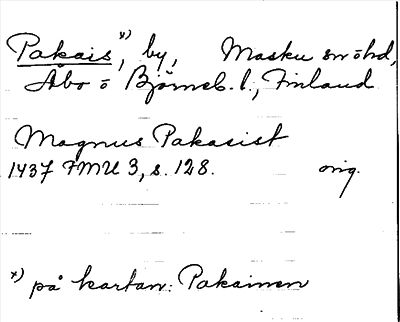 Pakais x), by, Masku sn o hd,
Åbo o Björneb. l., Finland
Magnus Pakasist
1437 FMU 3, s. 128. orig.
x) på kartan: Pakainen